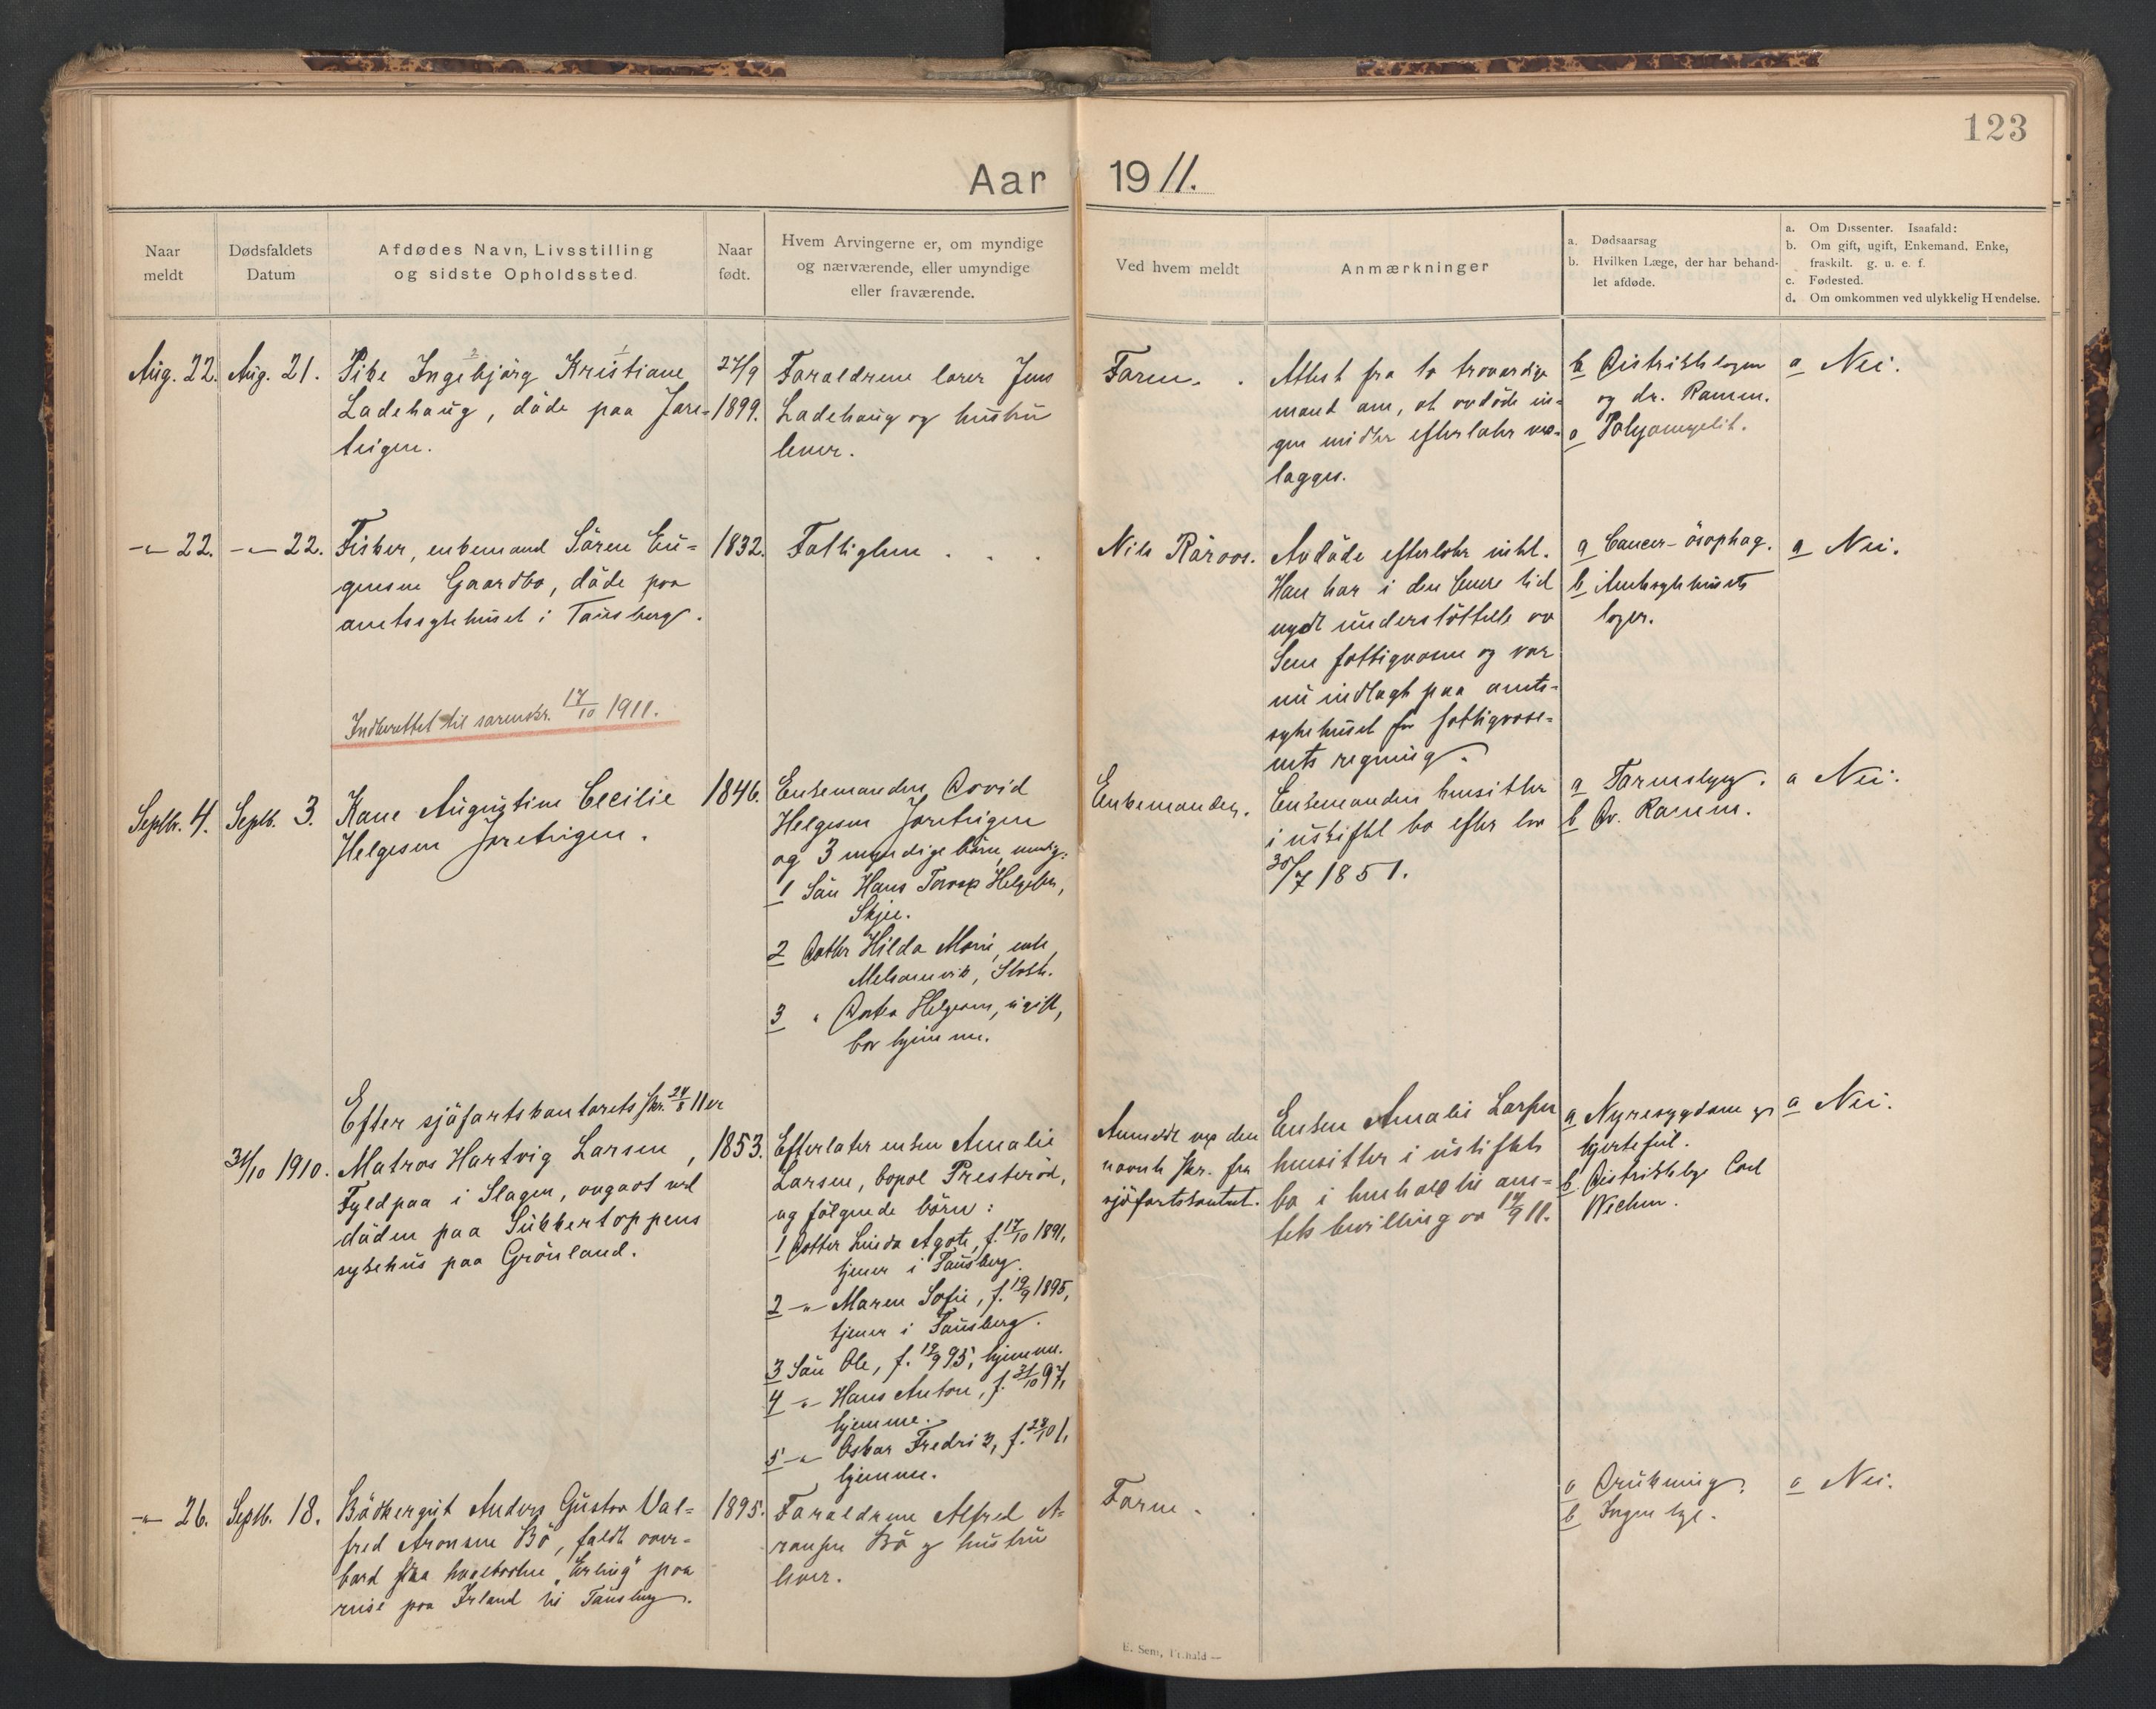 123
Aar 1911.
Naar
meldt
Dødsfaldets
Datum
Afdødes Navn, Livsstilling
og sidste Opholdssted.
Naar
født.
Hvem Arvingerne er, om myndige
og nærværende, eller umyndige
eller fraværende.
Ved hvem meldt
Anmærkninger
a. Dødsaarsag
b. Hvilken Læge, der har behand-
let afdøde.
a. Om Dissenter. Isaafald:
b. Om gift, ugift, Enkemand, Enke,
fraskilt. g. u. e. f.
c. Fødested.
d. Om omkommen ved ulykkelig Hændelse.
Aug. 22.
Aug. 21.
Pike Ingebjörg Kristiane
Ladehaug, döde paa Jare-
teigen.
27/9
1899.
Foraldrene larer Jens
Ladehaug og hustru
lever.
Faren.
Attest fra to trovardige
mand om, at avdöde in-
gen midler efterlater ved-
lagges.
b Distriktslagen
og dr. Ramm.
a Polyomyelit.
a Nei.
-"- 22.
-"- 22.
Fisker, enkemand Sören Eu-
gensen Gaardbo, döde paa
amtssykehuset i Tønsberg.
1832.
Fattiglem
Nils Röroos.
Avdöde efterlater intet.
Han har i den senere tid
nydt understöttelse av
Sem fattigvasen og var
nu indlagt paa amts-
sykehuset for fattigvase-
nets regning.
a Cancer-ösophag.
b Amtssykehusets
lager.
a Nei.
Indberettet til sorenskr. 17/10 1911.
Septb. 4.
Septb. 3.
Kone Augustine Cecilie
Helgesen Jareteigen.
1846.
Enkemanden David
Helgesen Jareteigen
og 3 myndige börn, nemlig:
1 Sön Hans Helgesen,
Skjee.
2 Datter Hilda Marie, enke,
Melsomvik, Stokke.
3 " Helgesen, ugift,
bor hjemme.
Enkemanden.
Enkemanden hensitter
i uskiftet bo efter lov
30/7 1851.
a Tarmslyng.
b Dr. Ramm.
a Nei.
Efter sjöfartskontorets skr. 24/8 11 er
31/10 1910.
Matros Hartvig Larsen,
Fyldpaa i Slagen, avgaat ved
döden paa Sukkertoppens
sykehus paa Grönland.
1853.
Efterlater enken Amalie
Larsen, bopal Presteröd,
og fölgende börn:
1 Datter Linda Agate, f. 17/10 1891,
tjener i Tønsberg.
2 -"- Maren Sofie, f. 19/9 1895,
tjener i Tønsberg.
3 Sön Ole, f. 19/9 95, hjemme.
4 -"- Hans Anton, f. 31/10 97,
hjemme.
5 -"- Oskar Fredrik, f. 28/10 1,
hjemme.
Anmeldt ved den
navnte skr. fra
sjöfartskontoret.
Enken Amalie Larsen
hensitter i uskiftet
bo i henhold til am-
tets bevilling av 14/9 11.
a Nyresygdom og
hjertefeil.
b. Distriktslage Carl
a Nei.
-"- 26.
Septb. 18.
Bödkergut Anders Gustav Val-
fred Aronsen Bö, faldt over-
bord fra hvalbaaten "Erling" paa
reise fra Irland til Tønsberg.
1895.
Foraldrene Alfred A-
ronsen Bö og hustru
lever.
Faren.
a Drukning.
b Ingen lage.
a Nei.
E. Sem, Fr.hald —